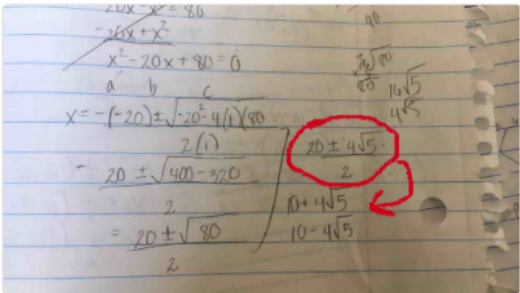 20x - x² = 80
- 20x + x²
x² - 20x + 80 = 0
a b c
x = -(-20) ± √-20² - 4(1)(80
2(1)
20 ± √400 - 320
2
= 20 ± √80
2
20 ± 4√5
2
10 + 4√5
10 - 4√5
40
80
16√5
4√5